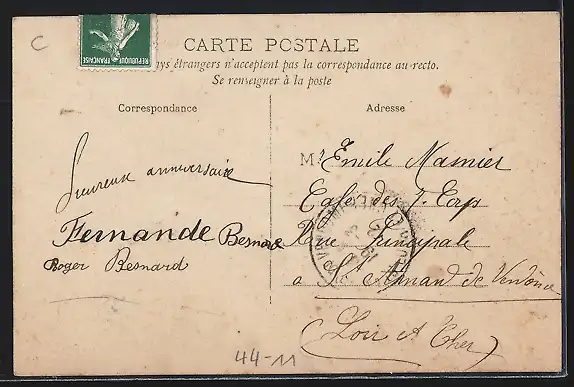 C
REPUBLIQUE FRANÇAISE
CARTE POSTALE
pays étrangers n'acceptent pas la correspondance au recto.
Se renseigner à la poste
Correspondance
Adresse
heureuse anniversaire
Fernande Besnard
Roger Besnard
Mr Emile Masnier
Cafer des 7. Corps
Rue Principale
a St Amand de Vendôme
(Loir et Cher)
44-11